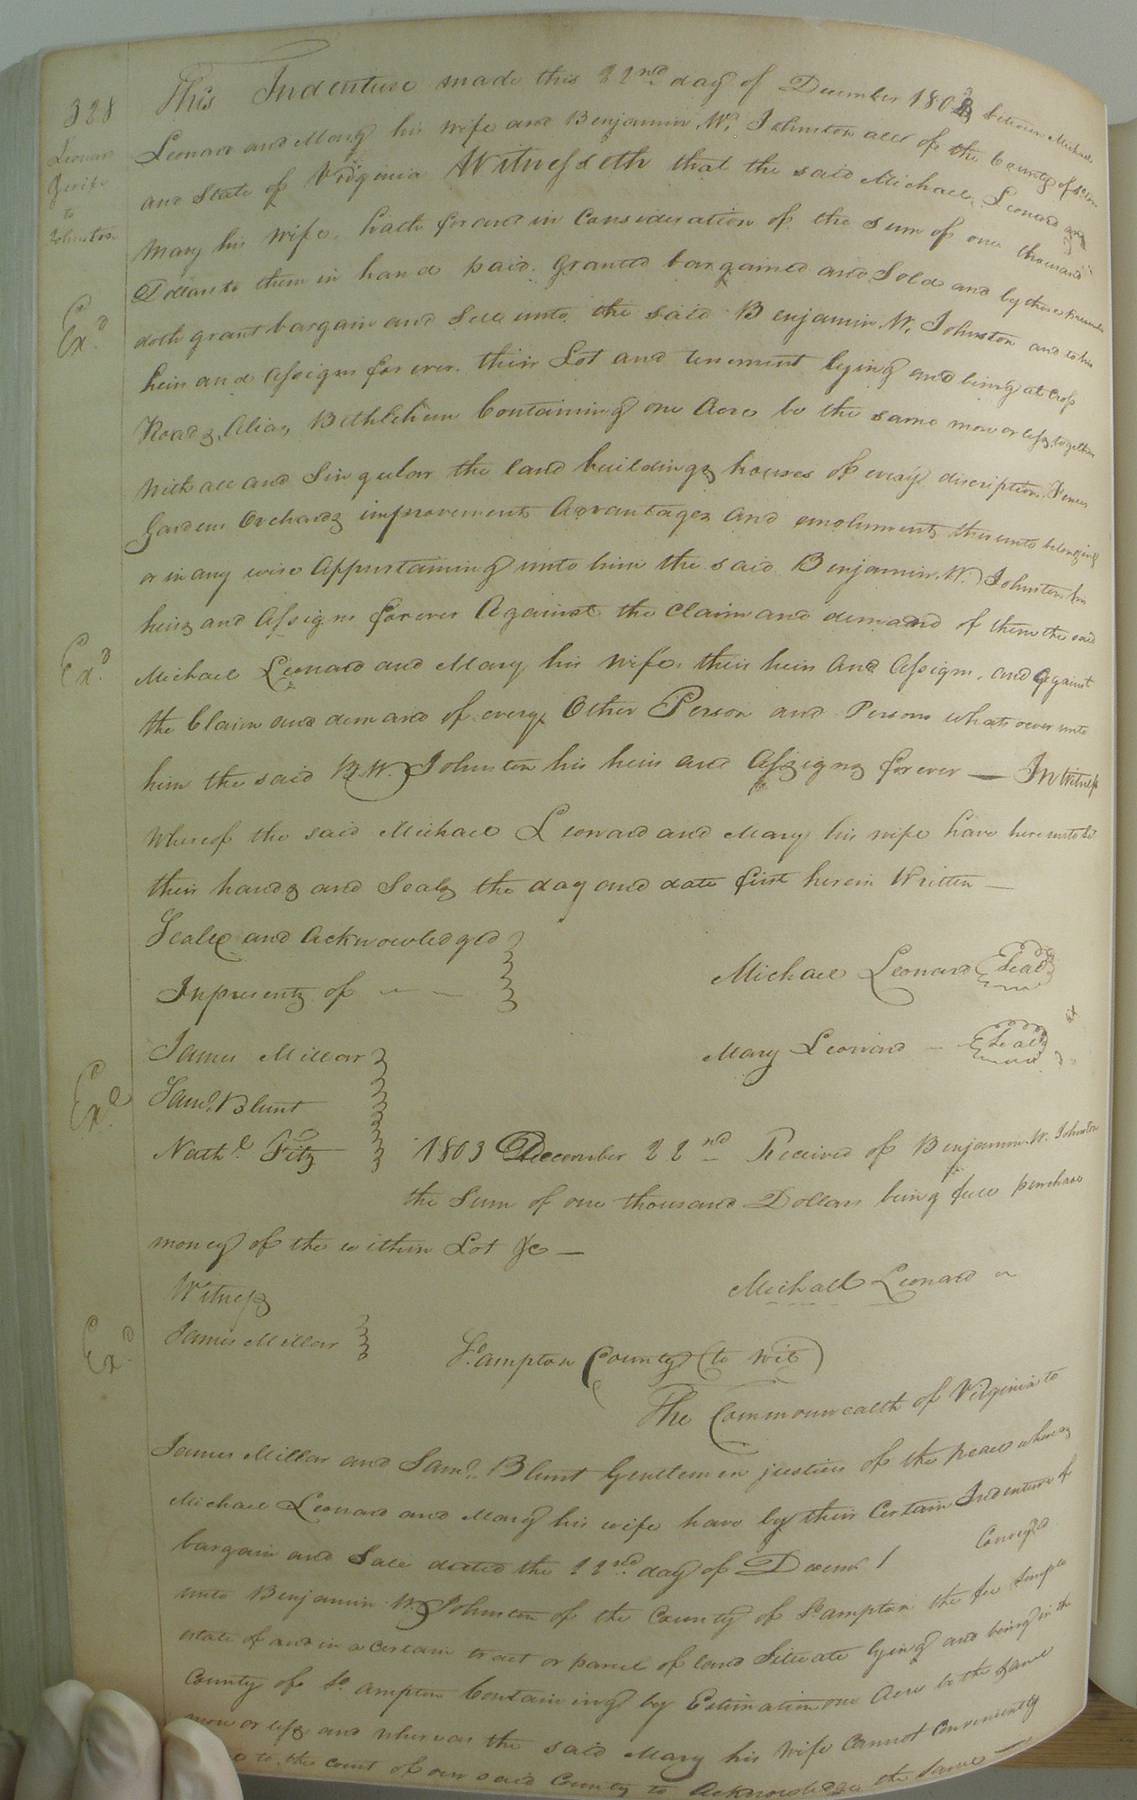 328
Leonard
& wife
to
Johnston
This Indenture made this 22nd day of December 1803 between Michael
Leonard and Mary his wife and Benjamin W. Johnston all of the County of So.ampton
and State of Virginia Witnesseth that the said Michael Leonard and
Mary his wife, hath for and in Consideration of the sum of one thousand
Dollars to them in hand paid. granted bargained and Sold and by these presents
doth grant bargain and Sell unto the said Benjamin W. Johnston and to his
heirs and assigns for ever. their Lot and tenement lying and being at Cross
Roads, Alias, Bethlehem Containing one Acre be the same more or less, together
with all and Singular the land buildings houses of every discription, Fences
Gardens Orchards improvements Advantages and emoluments thereunto belonging
or in any wise Appertaining unto him the said Benjamin W. Johnston his
heirs and Assigns forever Against the Claim and demand of them the said
Michael Leonard and Mary his wife, their heirs and Assigns, and against
the Claim and demand of every Other Person and Persons whatsoever unto
him the said B. W. Johnston his heirs and Assigns forever — In Witness
Whereof the said Michael Leonard and Mary his wife have hereunto set
their hands and Seals the day and date first herein Written —
Seald and Acknowledged
In presents of
Michael Leonard Seal
James Millar
Mary Leonard — Seal
Saml. Blunt
Nathl. Fitz
1803 December 22nd Received of Benjamin W. Johnston
the Sum of one thousand Dollars being full purchase
money of the within Lot &c —
Michael Leonard
Witness
James Millar
So.ampton County (to wit)
The Commonwealth of Virginia to
James Millar and Saml. Blunt Gentlemen justices of the peace whereas
Michael Leonard and Mary his wife have by their Certain Indenture of
bargain and Sale dated the 22nd day of Decemr. Conveyd
unto Benjamin W. Johnston of the County of So.ampton the fee Simple
estate of and in a certain tract or parcel of land Situate lying and being in the
County of So.ampton Containing by Estimation one Acre be the same
more or less and whereas the said Mary his wife Cannot Conveniently
to the court of our said County to Acknowledge the same —
Exd.
Exd.
Exd.
Exd.